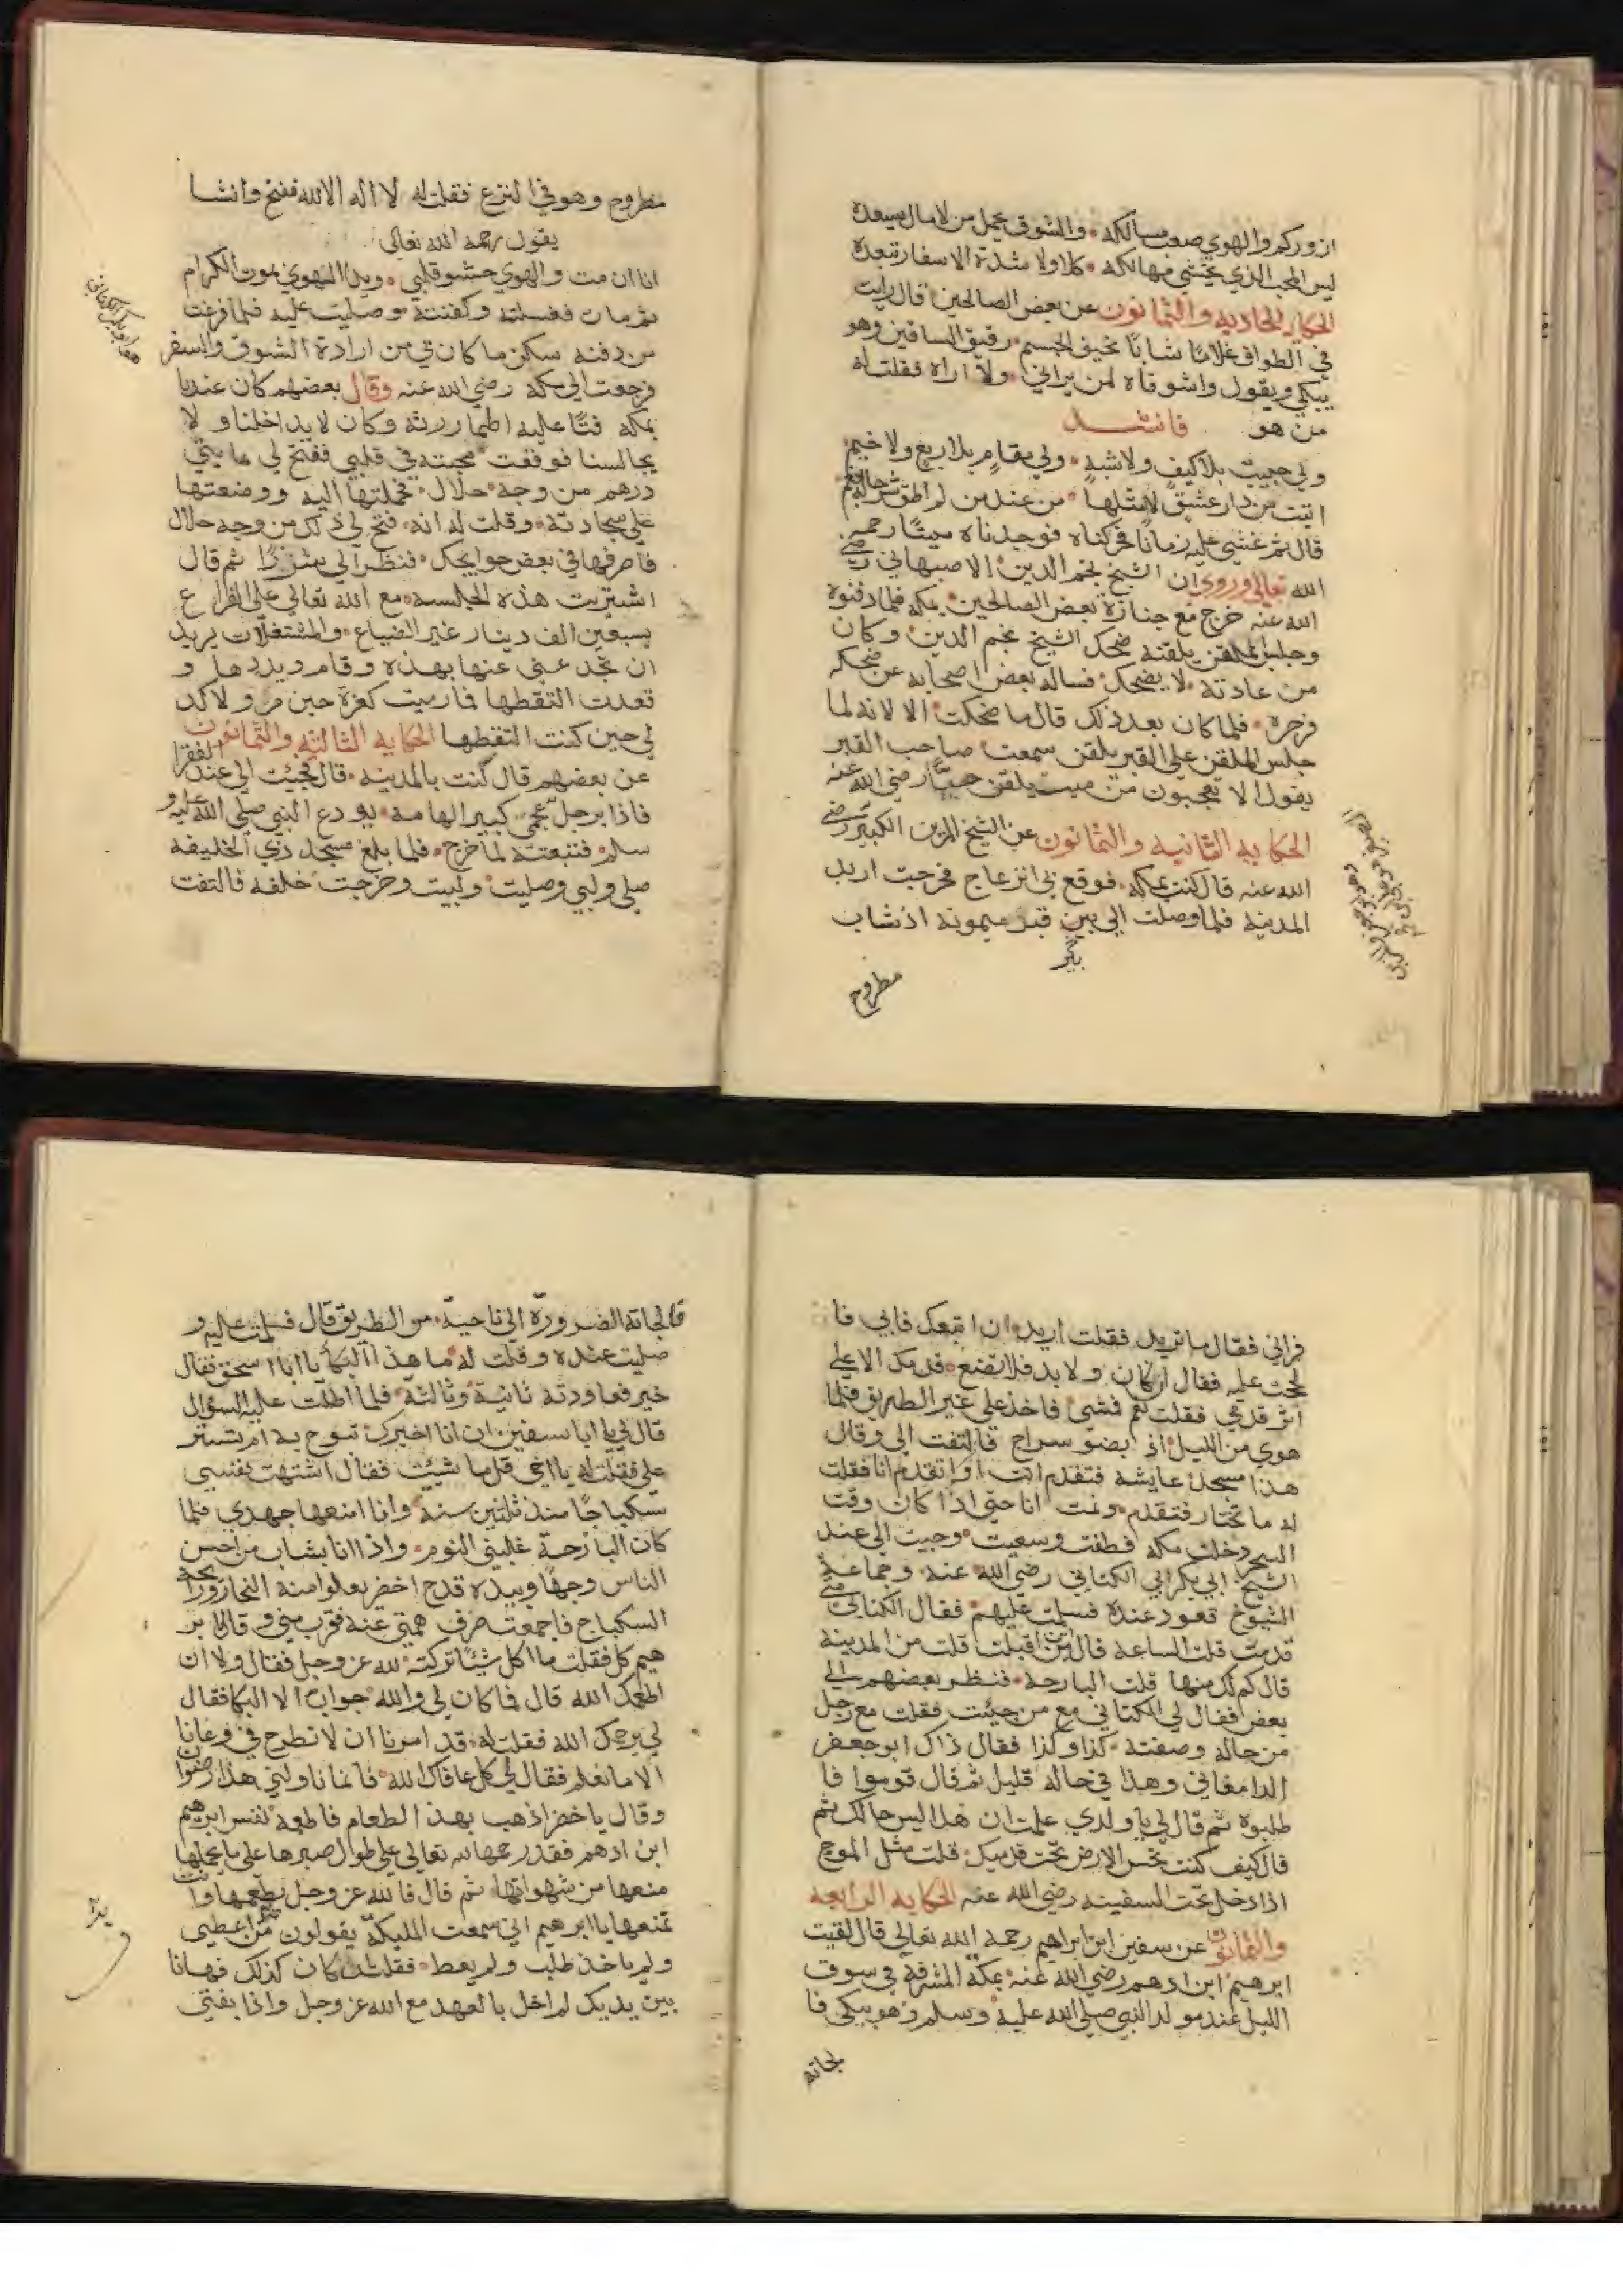 ازوركم والهوي صعب مسالكه والشوق يحمل من لا مال يسعده
ليس المحب الذي يخشي مهالكه كلا ولا شدة الاسفار تبعده
الحكاية الحادية والثمانون عن بعض الصالحين قال رايت
في الطواف غلاما شابا نحيف الجسم رقيق الساقين وهو
يبكي ويقول واشوقاه لمن يراني ولا اراه فقلت له
من هو فانشد
ولي حبيب بلا كيف ولا شبه ولي مقام بلا ربع ولا خيم
اتيت من دار عشق لا مثل لها من عند من لم اطق شرحا
قال ثم غشي عليه زمانا فحركناه فوجدناه ميتا رحمه
الله تعالى وروي ان الشيخ نجم الدين الاصبهاني رضي
الله عنه خرج مع جنازة بعض الصالحين بمكه فلما دفنوه
وجلس الملقن يلقنه ضحك الشيخ نجم الدين وكان
من عادته لا يضحك فساله بعض اصحابه عن ضحكه
فزجره فلما كان بعد ذلك قال ما ضحكت الا لانه لما
جلس الملقن علي القبر يلقن سمعت صاحب القبر
يقول الا تعجبون من ميت يلقن حيا رضي الله عنه
الحكايه الثانيه والثمانون عن الشيخ المزين الكبير رضي
الله عنه قال كنت بمكه فوقع بي انزعاج فخرجت اريد
المدينه فلما وصلت الي بير قبر ميمونه اذ شاب
بير
مطروح
مطروح وهو في النزع فقلت له لا اله الا الله ففتح وانشا
يقول رحمه الله تعالى
انا ان مت والهوي حشو قلبي وبدا الهوي يموت الكرام
ثم مات فغسلته وكفنته وصليت عليه فلما فرغت
من دفنه سكن ما كان في من ارادة الشوق والسفر
فرجعت الي مكه رضي الله عنه وقال بعضهم كان عندنا
بمكه فتا عليه اطمار رثه وكان لا يداخلنا و لا
يجالسنا فوقعت محبته في قلبي ففتح لي بمايتي
درهم من وجه حلال فحملتها اليه ووضعتها
علي سجادته وقلت له انه فتح لي ذلك من وجه حلال
فاصرفها في بعض حوايجك فنظر الي شزرا ثم قال
اشتريت هذه الجلسه مع الله تعالى علي الفراغ
بسبعين الف دينار غير الضياع والمشتغلات يريد
ان تخدعني عنها بهذه وقام وبددها و
قعدت التقطها فما رايت كعزه حين مر ولا كذ
لي حين كنت التقطها الحكايه الثالثه والثمانون
عن بعضهم قال كنت بالمدينه قال فجيئت الي عند الفقرا
فاذا برجل عجمي كبير الهامه يودع النبي صلي الله عليه و
سلم فتبعته لما خرج فلما بلغ مسجد ذي الحليفه
صلي ولبي وصليت ولبيت وخرجت خلفه فالتفت
فراني فقال ما تريد فقلت اريد ان اتبعك فابي فا
لححت عليه فقال ان كان ولا بد فلا تضع قدمك الا علي
اثر قدمي فقلت نعم فمشي فاخذ علي غير الطريق فلما
هوي من الليل اذ ابضو سراج فالتفت الي وقال
هذا مسجد عايشه فتقدم انت او اتقدم انا فقلت
له ما تختار فتقدم ونمت انا حتي اذا كان وقت
السحر دخلت مكه فطفت وسعيت وجيت الي عند
الشيخ ابي بكر ابي الكتاني رضي الله عنه وجماعه
الشيوخ قعود عنده فسلمت عليهم فقال الكتاني متي
قدمت قلت الساعه قال من اين اقبلت قلت من المدينه
قال كم لك منها قلت البارحه فنظر بعضهم الي
بعض فقال لي الكتاني مع من جيئت فقلت مع رجل
من حاله وصفته كذا وكذا فقال ذاك ابو جعفر
الدامغاني وهذا في حاله قليل ثم قال قوموا فا
طلبوه ثم قال لي يا ولدي علمت ان هذا ليس حالك ثم
قال كيف كنت تحس الارض تحت قدميك قلت مثل الموج
اذا دخل تحت السفينه رضي الله عنه الحكايه الرابعه
والثمانون عن سفين ابن ابراهيم رحمه الله تعالى قال لقيت
ابرهيم ابن ادهم رضي الله عنه بمكه المشرفه في سوق
الليل عند مولد النبي صلي الله عليه وسلم وهو يبكي فا
لجاته
فالجاته الضروره الي ناحيه من الطريق قال فسلمت عليه و
صليت عنده وقلت له ما هذا البكا يا ابا اسحق فقال
خير فعاودته ثانيه وثالثه فلما اطلت عليه السؤال
قال لي يا ابا سفين ان انا اخبرك تبوح به ام تستر
علي فقلت له يا اخي قل ما شيئت فقال اشتهت نفسي
سكباجا منذ ثلثين سنه وانا امنعها جهدي فلما
كان البارحة غلبني النوم واذا انا بشاب من احسن
الناس وجها وبيده قدح اخضر يعلوا منه البخار ورايحه
السكباج فاجمعت صرف همتي عنه فقرب مني وقال يا بر
هيم كل فقلت ما اكل شيئا تركته لله عز وجل فقال ولا ان
اطعمك الله قال فما كان لي والله جواب الا البكا فقال
لي يرحمك الله فقلت له قد امرنا ان لا نطرح في وعائنا
الا ما نعلم فقال لي كل عافاك الله فانما ناولني هذا رضوان
وقال يا خضر اذهب بهذا الطعام فاطعمه لنفس ابرهيم
ابن ادهم فقد رحمها الله تعالى علي طول صبرها علي ما يحملها
منعها من شهواتها ثم قال فالله عز وجل يطعمها وانت
تمنعها يا ابرهيم اني سمعت المليكه يقولون من اعطي
ولم ياخذ طلب ولم يعط فقلت ان كان كذلك فها انا
بين يديك لم اخل بالعهد مع الله عز وجل واذا بفتي